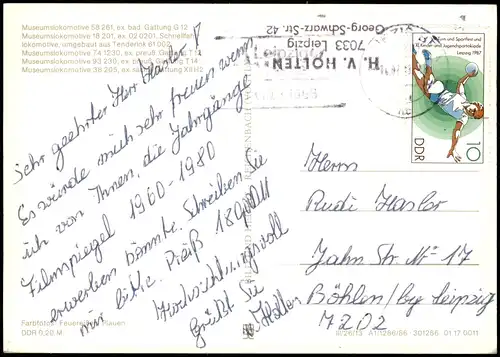 Museumslokomotive 58 261, ex. bad. Gattung G 12
Museumslokomotive 18 201, ex. 02 0201, Schnellfahr-
lokomotive, umgebaut aus Tenderlok 61 002
Museumslokomotive 74 1230, ex. preuß. Gattung T 12
Museumslokomotive 93 230, ex. preuß. Gattung T 14
Museumslokomotive 38 205, ex. sächs. Gattung XII H2
Sehr geehrter Herr
Es würde mich sehr freuen wenn
ich von Ihnen, die Jahrgänge
Filmspiegel 1960-1980
erwerben könnte. Schreiben Sie
mir bitte. Preiß 1890M
Hochachtungsvoll
Grüßt Sie
Holten
H. V. HOLTEN
7033 Leipzig
Georg-Schwarz-Str. 42
Turn- und Sportfest und
XI. Kinder- und Jugendspartakiade
Leipzig 1987
DDR
10
Herrn
Rudi Hasler
Jahn Str. Nr 17
Böhlen/bg Leipzig
7202
Farbfotos: Plauen
DDR 0,20 M
III/26/13 A1/1286/86 301286 01 17 0011